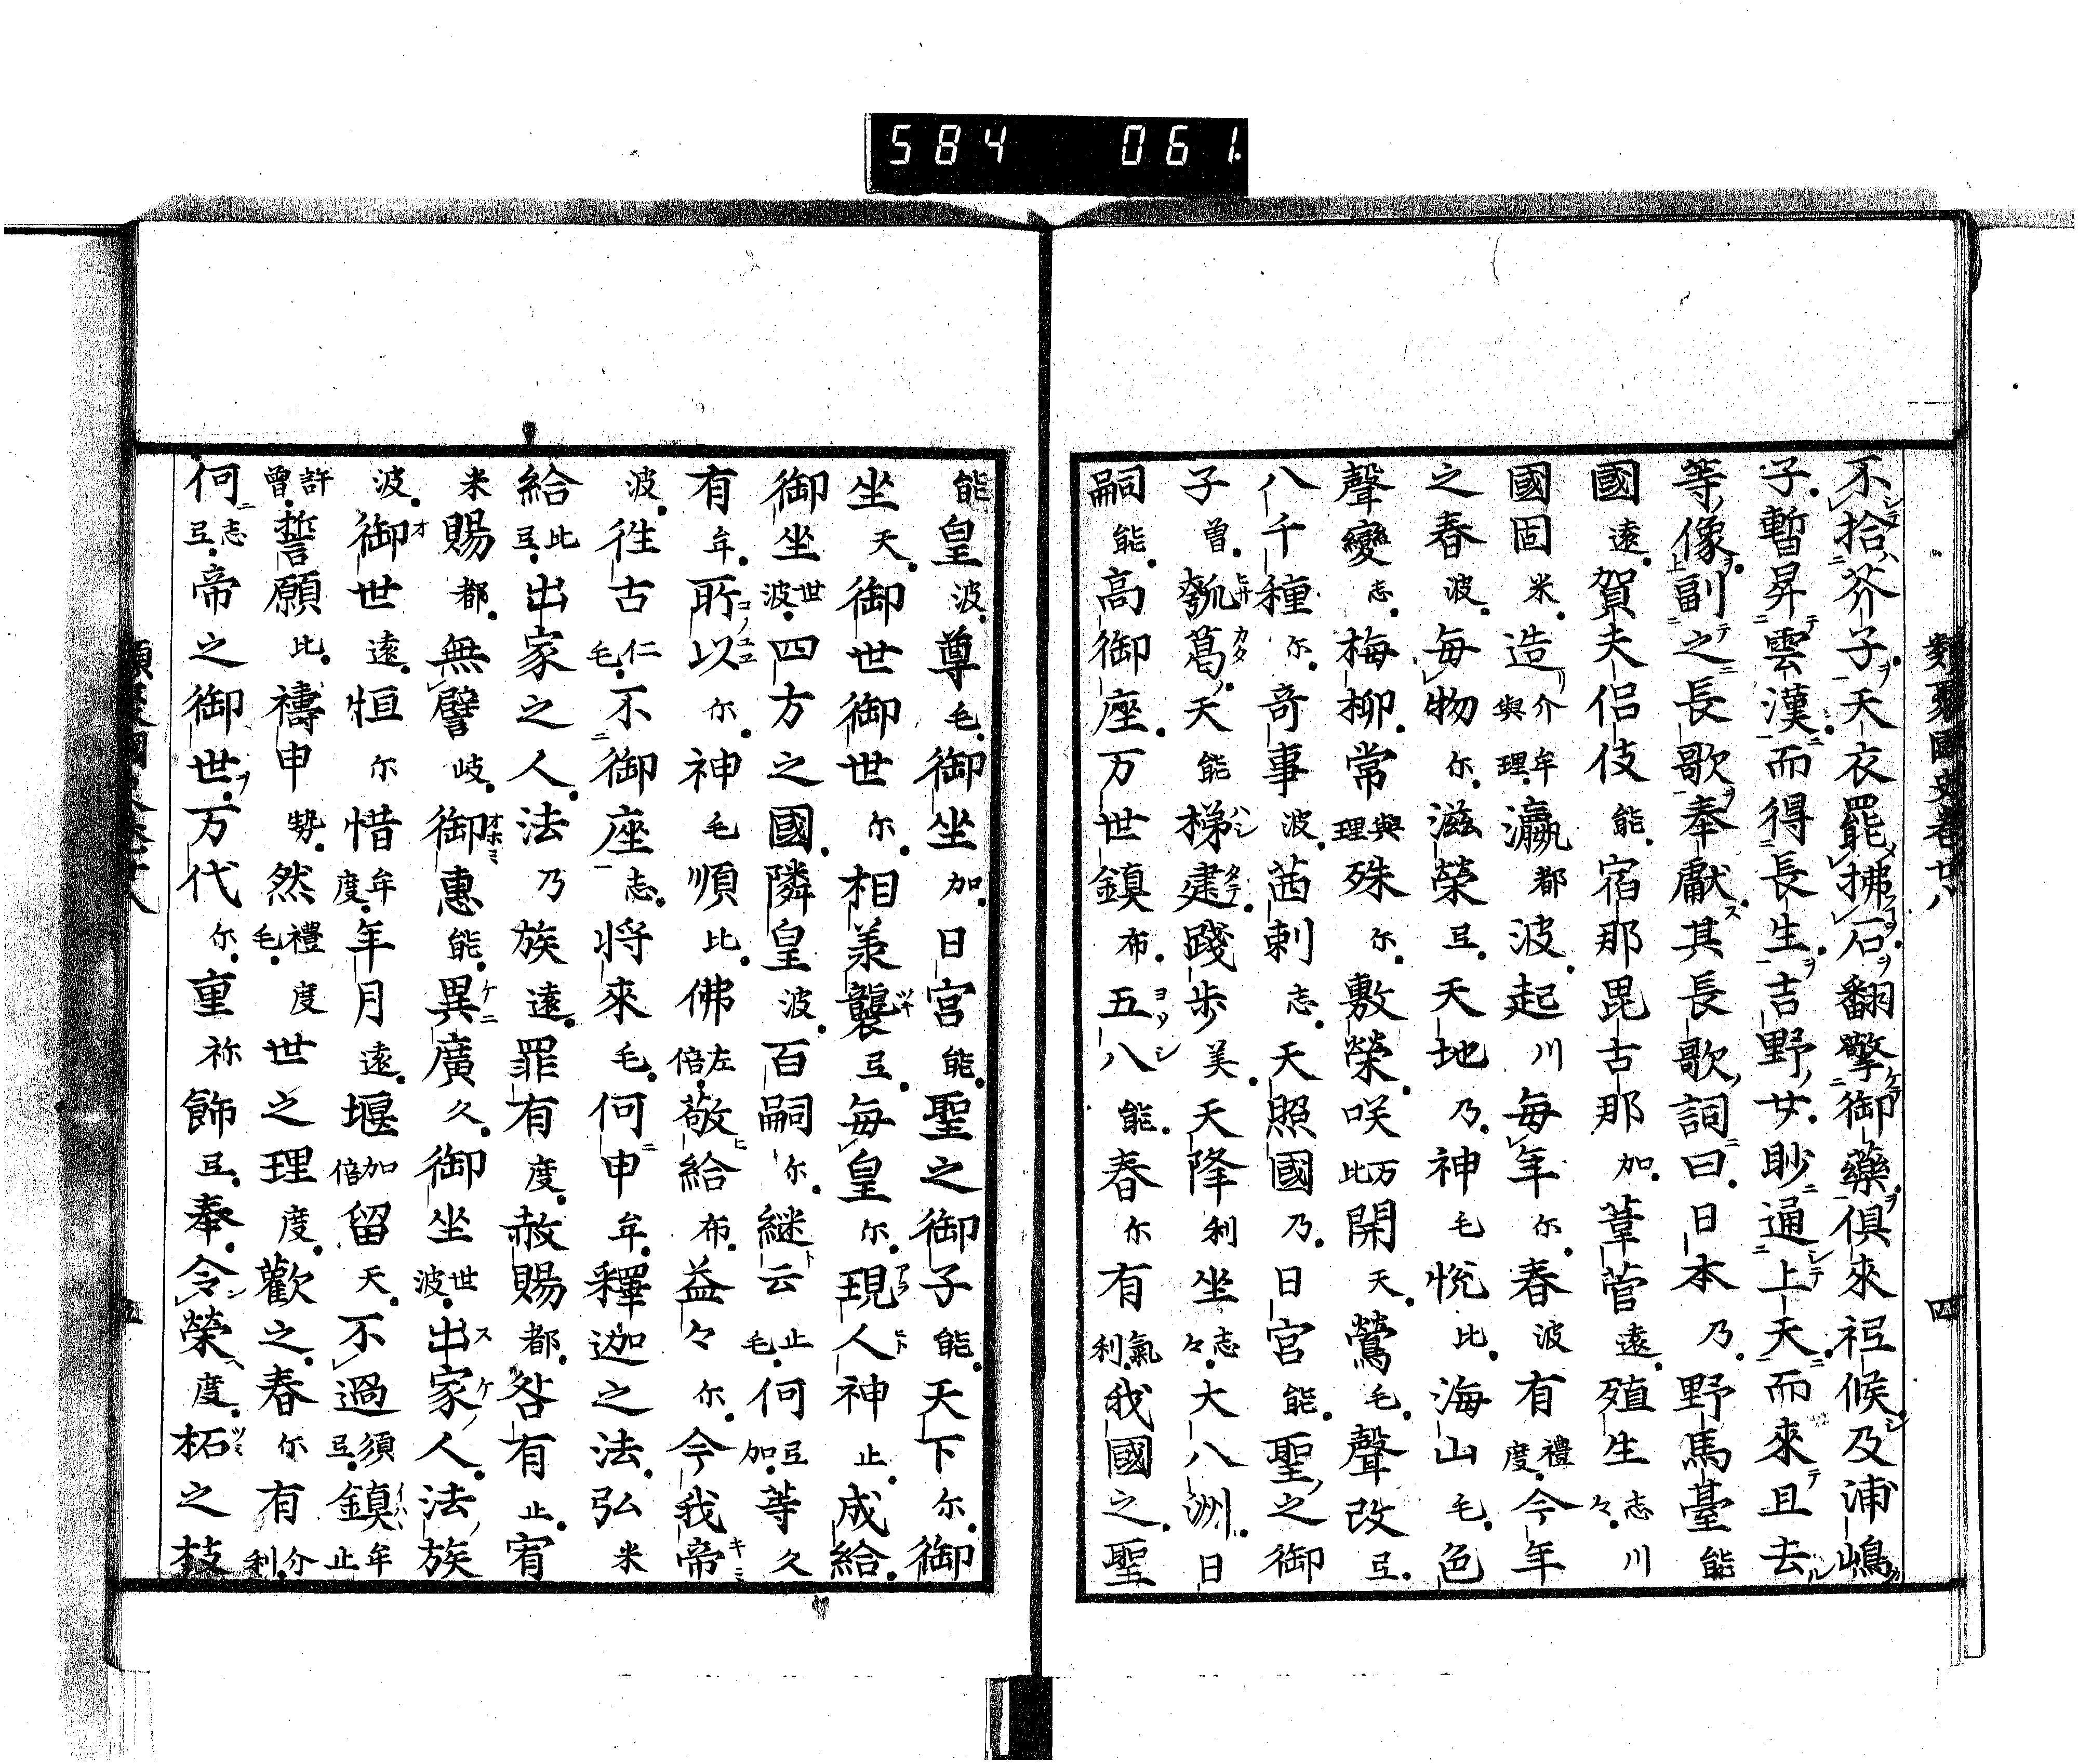 584 061.
類聚國史卷廿八 四
不拾芥子天衣罷拂石翻擎御藥倶來祗候及浦嶋
子暫昇雲漢而得長生吉野女眇通上天而來且去
等像副之長歌奉獻其長歌詞曰日本乃野馬臺能
國遠賀夫侶伎能宿那毘古那加葦菅遠殖生志々川
國固米造介牟與理瀛都波起川毎年尓春波有禮度今年
之春波毎物尓滋榮弖天地乃神毛悦比海山毛色
聲變志梅柳常與理殊尓敷榮咲万比開天鶯毛聲改弖
八千種尓奇事波茜刺志天照國乃日宮能聖之御
子曽瓠葛天能梯建踐歩美天降利坐志々大八洲日
嗣能高御座万世鎮布五八能春尓有氣利我國之聖
能皇波尊毛御坐加日宮能聖之御子能天下尓御
坐天御世御世尓相羕襲弖毎皇尓現人神止成給
御坐世波四方之國隣皇波百嗣尓継云止毛何弖加等久
有牟所以尓神毛順比佛左倍敬給布益々尓今我帝
波往古仁毛不御座志將來毛何申牟釋迦之法弘米
給比弖出家之人法乃族遠罪有度赦賜都咎有止宥
米賜都無譬岐御惠能異廣久御坐世波出家人法族
波御世遠恒尓惜牟度年月遠堰加倍留天不過須弖鎮牟止
許曽誓願比禱申勢然禮毛度世之理度歡之春尓有介利
何志弖帝之御世万代尓重祢飾弖奉令榮度柘之枝
五